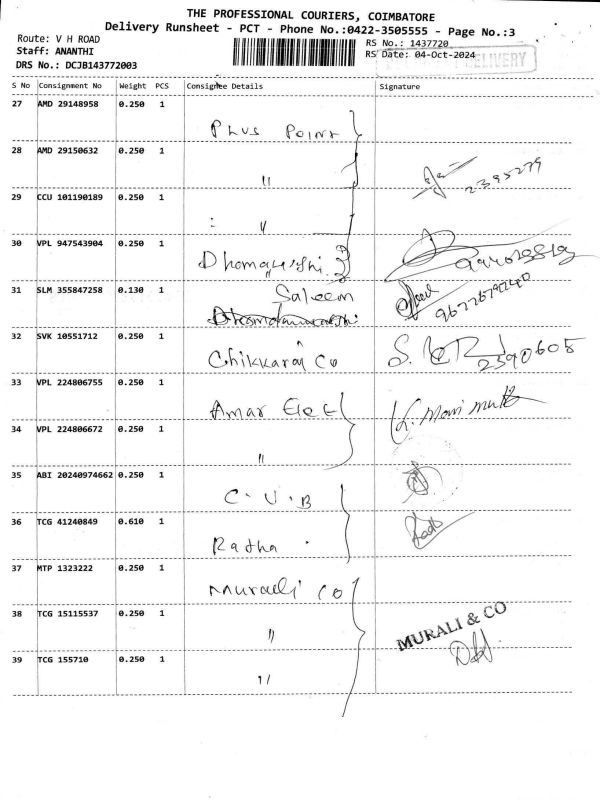 THE PROFESSIONAL COURIERS, COIMBATORE
Delivery Runsheet - PCT - Phone No.:0422-3505555 - Page No.:3
Route: V H ROAD
RS No.: 1437720
Staff: ANANTHI
RS Date: 04-Oct-2024
DELIVERY
DRS No.: DCJB143772003
S No Consignment No Weight PCS Consignee Details Signature
27 AMD 29148958 0.250 1
Plus Point
28 AMD 29150632 0.250 1
"
2395279
29 CCU 101190189 0.250 1
"
30 VPL 947543904 0.250 1
31 SLM 355847258 0.130 1
Saleem
32 SVK 10551712 0.250 1
Chikkarai Co
2390605
33 VPL 224806755 0.250 1
Amar Elec
K. Mani
34 VPL 224806672 0.250 1
"
35 ABI 20240974662 0.250 1
C.U.B
36 TCG 41240849 0.610 1
Radha
37 MTP 1323222 0.250 1
Murali Co
38 TCG 15115537 0.250 1
"
MURALI & CO
39 TCG 155710 0.250 1
"